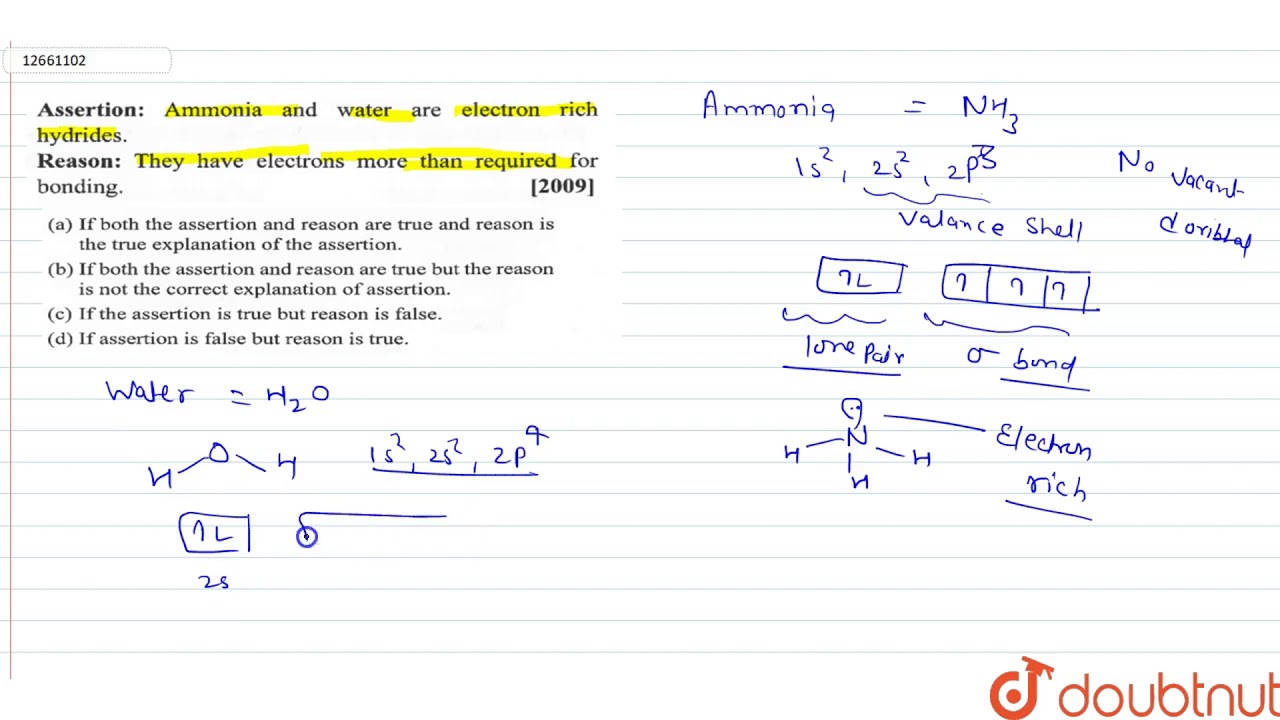 12661102
Assertion: Ammonia and water are electron rich
hydrides.
Reason: They have electrons more than required for
bonding. [2009]
(a) If both the assertion and reason are true and reason is
the true explanation of the assertion.
(b) If both the assertion and reason are true but the reason
is not the correct explanation of assertion.
(c) If the assertion is true but reason is false.
(d) If assertion is false but reason is true.
Water = H2O
O
H H
1s², 2s², 2p⁴
1L
2s
Ammonia = NH3
1s², 2s², 2p³
Valance Shell
No Vacant
1L 1 1 1
lone pair σ bond
N
H H
H
Electron
rich
doubtnut